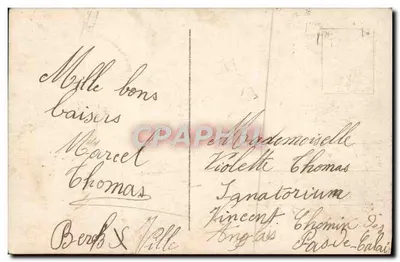 Mille bons
baisers
Marcel
Thomas
Berck Ville
Mademoiselle
Violette Thomas
Sanatorium
Vincent Chemin des
Anglais Pas-de-Calais